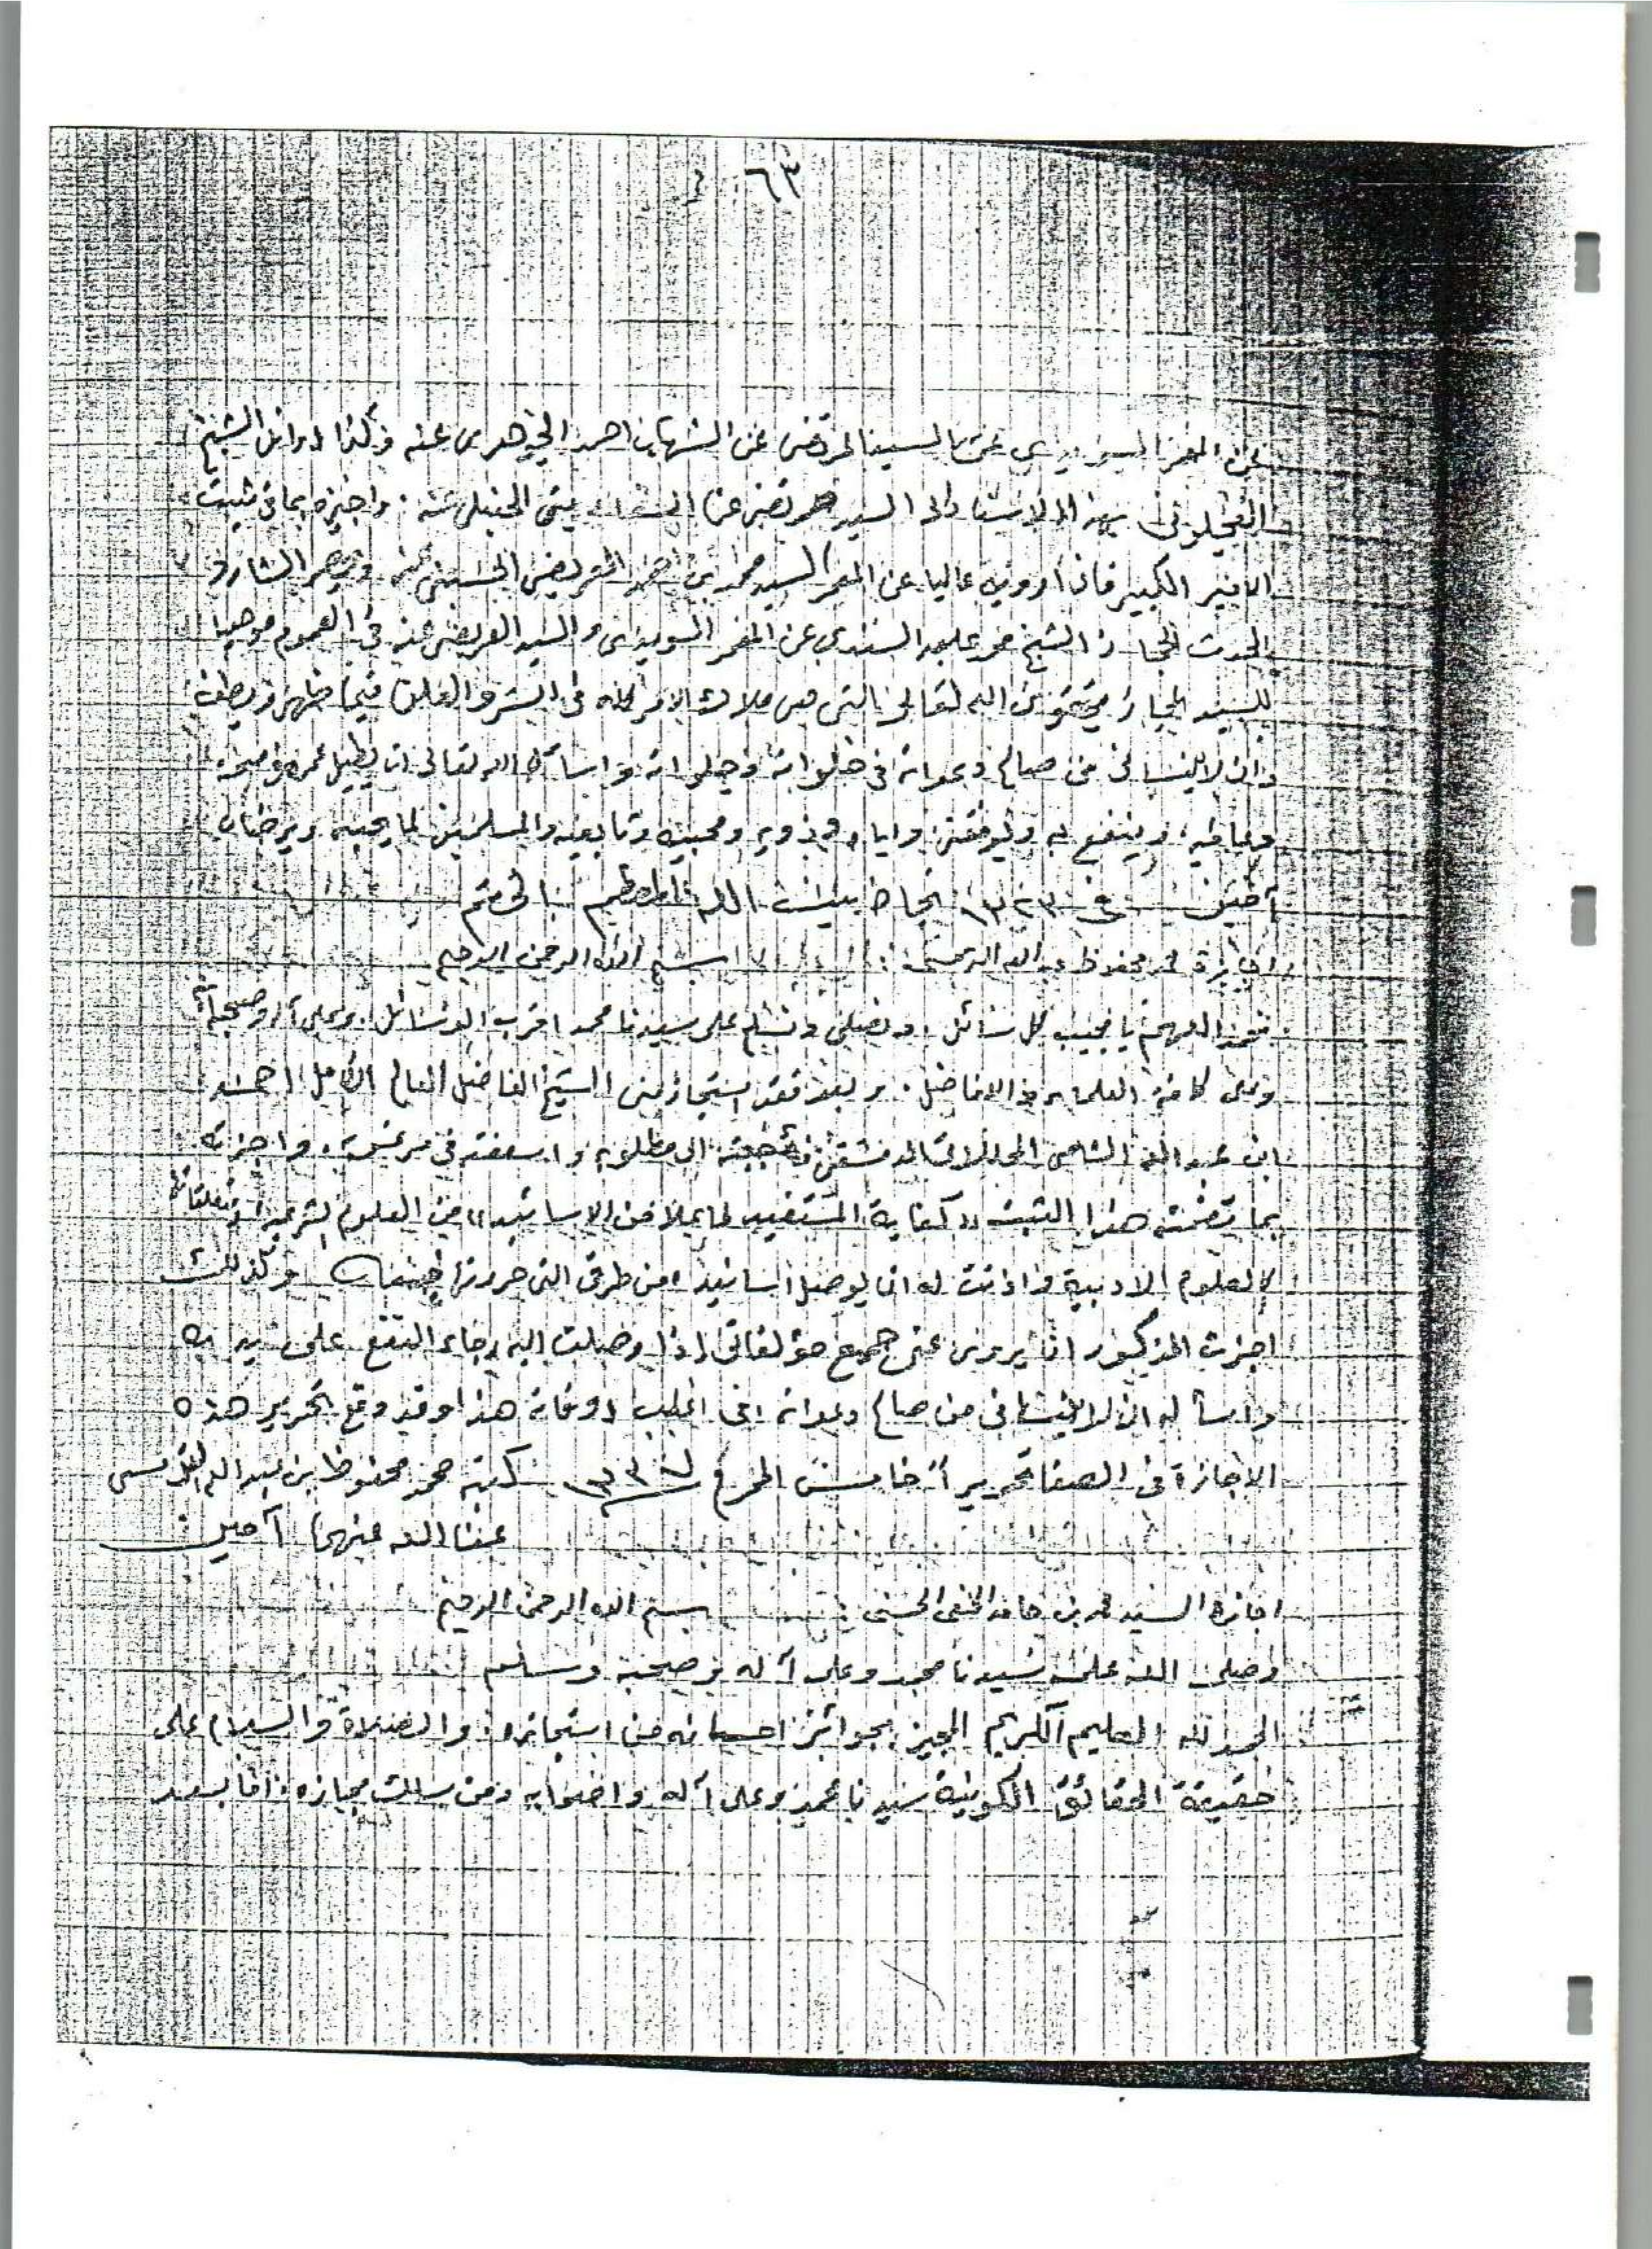 ٦٣
عن المعمر السويدي عن السيد المرتضى عن الشهاب احمد الجوهري عنه وكذا اوائل الشيخ
العجلوني بهذا الاسناد الى السيد مرتضى عن الحنبلي عنه . واجيزه بما في ثبت
الامير الكبير فانا ارويه عاليا عن المعمر السيد محمد بن العريضي الحسيني عنه
الشيخ محمد عابد السندي عن المعمر السويدي والسيد العريضي عنه في العموم موصيا
للسيد المجاز بتقوى الله تعالى التي هي ملاك الامر كله في السر والعلن فيما ظهر وبطن
وان لا ينساني من صالح دعواته في خلواته وجلواته واسأل الله تعالى ان يطيل عمره في صحة
وعافية، وينفع به ويوفقني واياه وذويه ومحبيه وتابعيه والمسلمين لما يحبه ويرضاه
آمين في ١٣٢٣ تجاه بيت الله الختم
اجازة محمد محفوظ عبد الله الترمسي : بسم الله الرحمن الرحيم
نحمد اللهم يا مجيب كل سائل . ونصلي ونسلم على سيدنا محمد اقرب الوسائل . وعلى آله وصحبه
وعلى كافة العلماء الافاضل . وبعد فقد استجاز مني الشيخ الفاضل العالم الكامل احمد
ابن عبد الله الشامي الدمشقي فأجبته الى مطلوبه واسعفته في مرغوبه . واجزته
بما تضمنه هذا الثبت «كفاية المستفيد لما علا من الاسانيد» من العلوم الشرعية ومتعلقاتها
كالعلوم الادبية واذنت له ان يوصل اسانيده من طرقي التي حررتها وكذلك
اجزت المذكور ان يروي عني جميع مؤلفاتي اذا وصلت اليه رجاء النفع على يديه
واسأله ان لا ينساني من صالح دعواته في اغلب اوقاته هذا وقد وقع تحرير هذه
الاجازة في الصفا تحريرا خامس المحرم كتبه محمد محفوظ بن عبد الله الترمسي
عفا الله عنهما آمين
اجازة السيد محمد بن حامد الحنفي الحسني : بسم الله الرحمن الرحيم
وصلى الله على سيدنا محمد وعلى آله وصحبه وسلم
الحمد لله العليم الكريم المجيز بجوائز احسانه من استجازه . والصلاة والسلام على
حقيقة الحقائق الكونية سيدنا محمد وعلى آله واصحابه ومن سلك مجازه . اما بعد